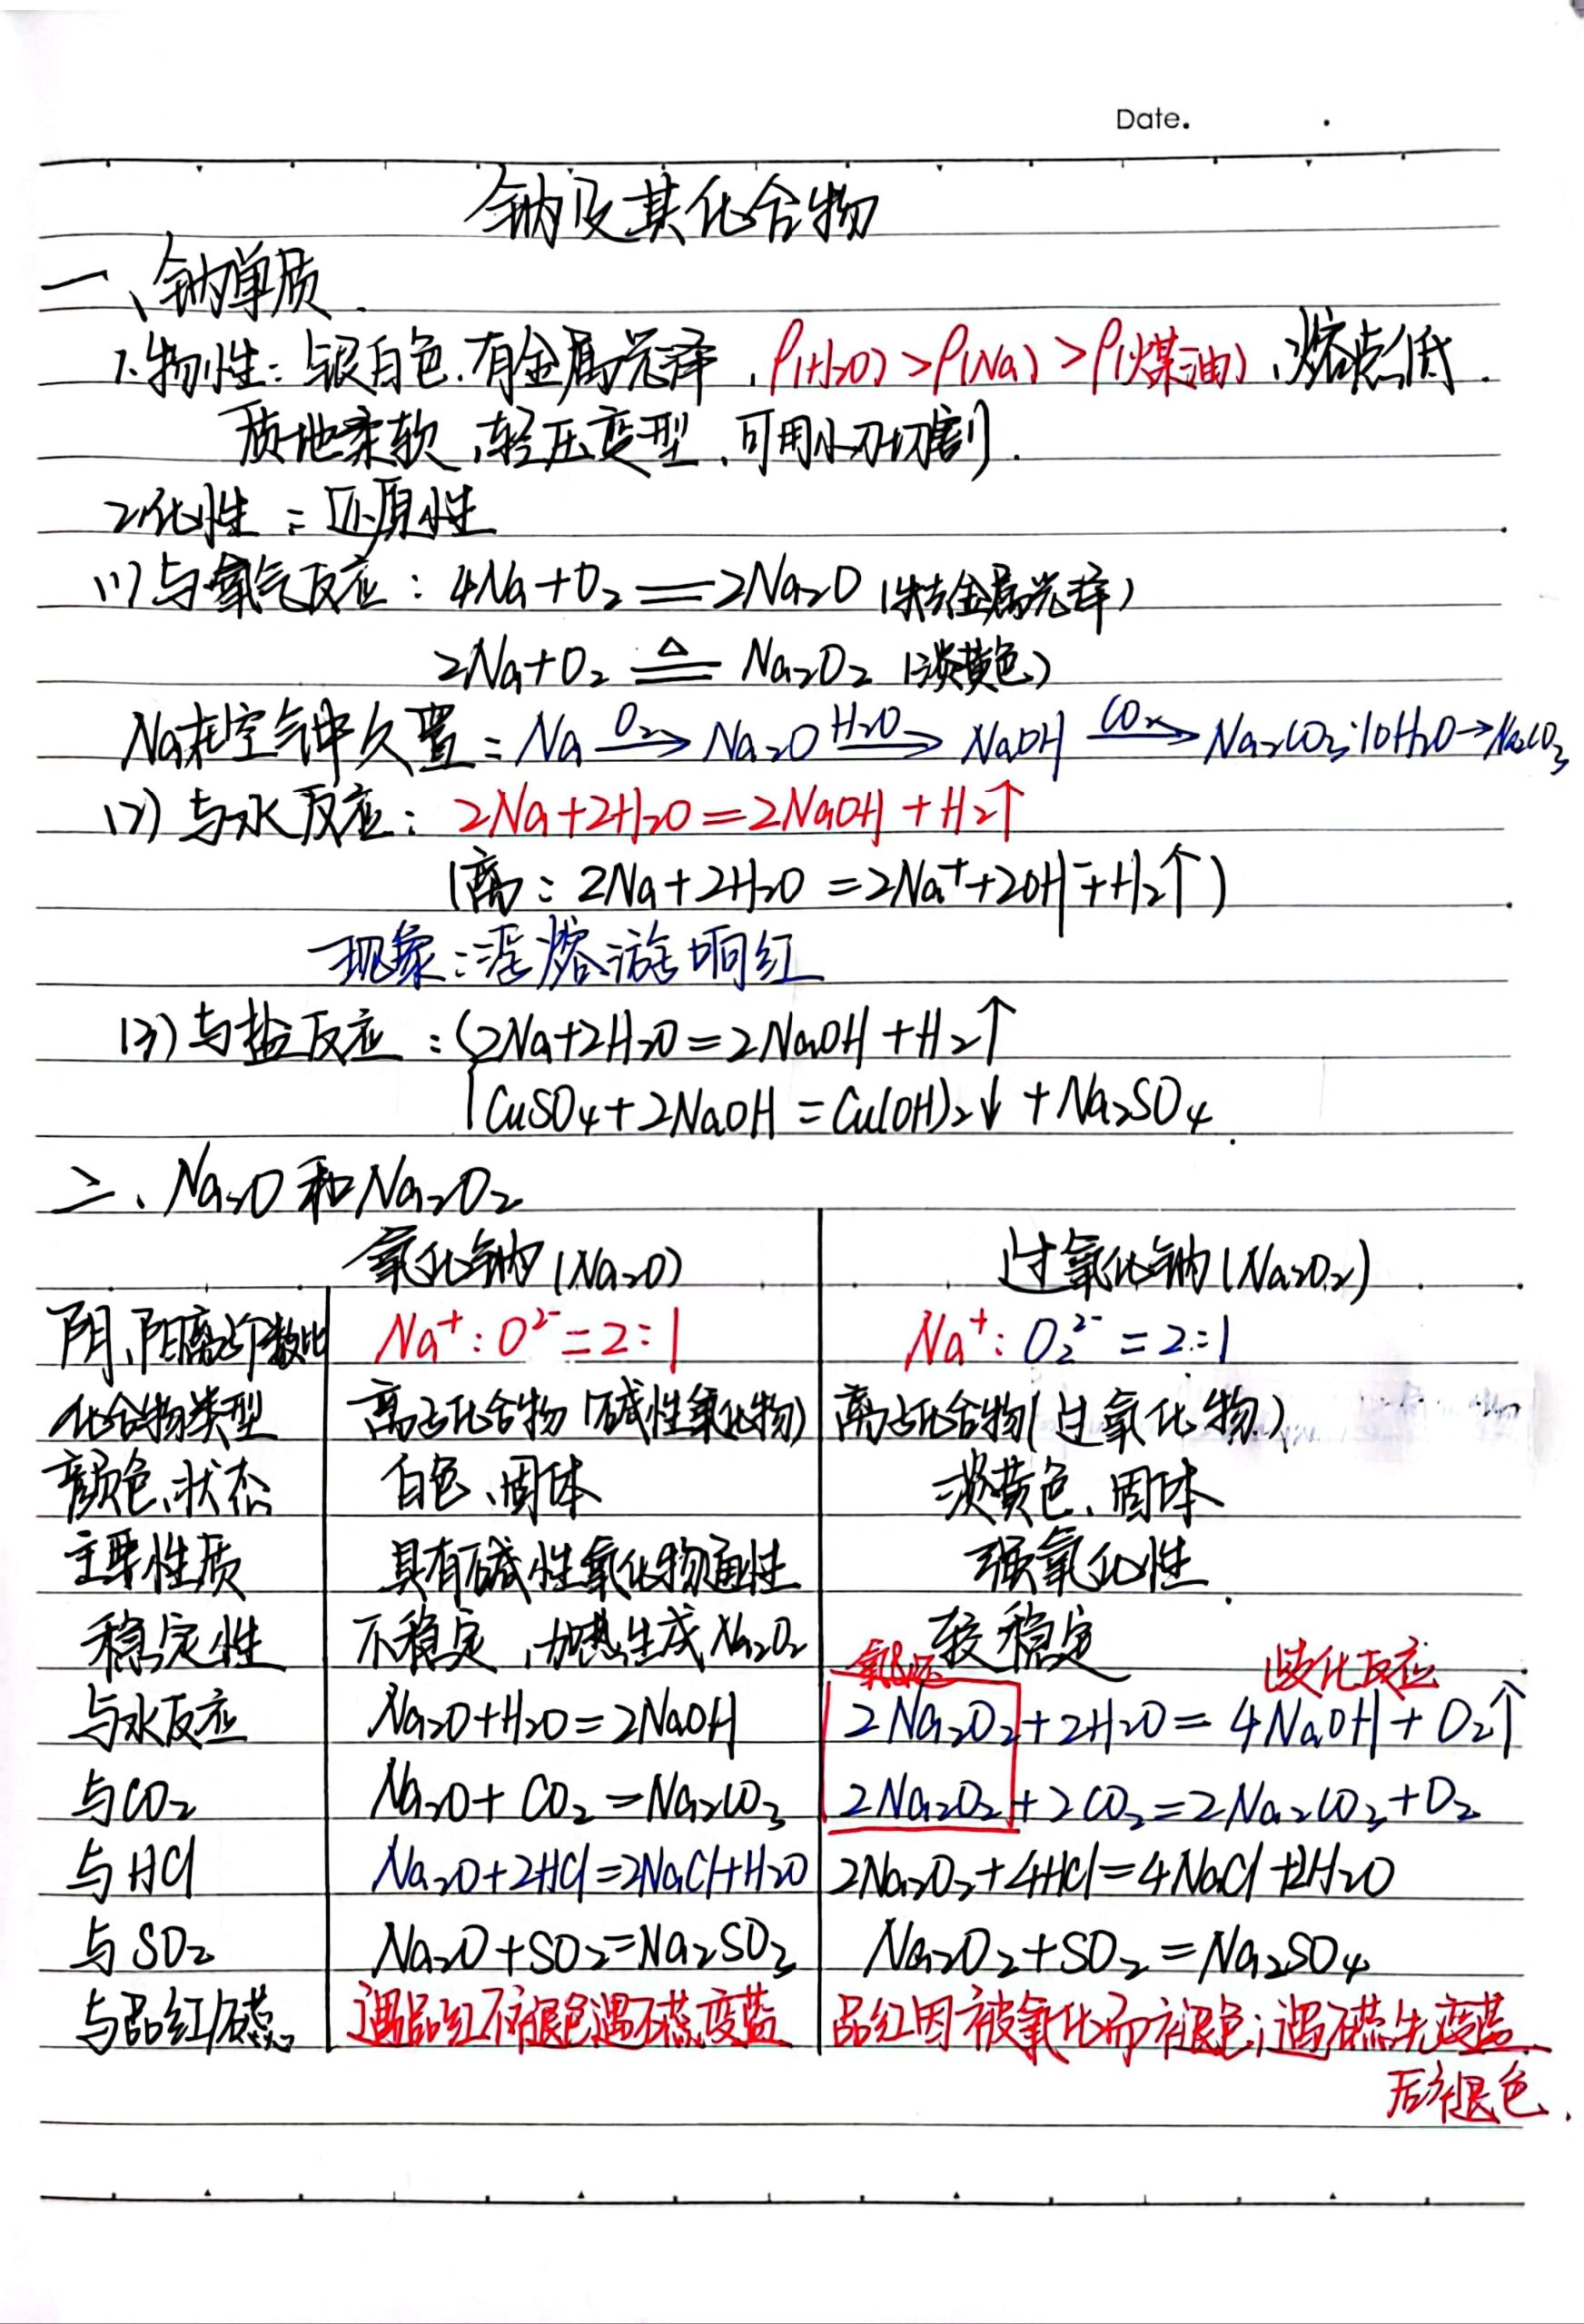 Date.
钠及其化合物
一、钠单质.
1.物性:银白色.有金属光泽,ρ(H₂O)>ρ(Na)>ρ(煤油),熔点低.
质地柔软,轻压变型,可用小刀切割.
2.化性:还原性
(1)与氧气反应:4Na+O₂=2Na₂O(失去金属光泽)
2Na+O₂ ≜ Na₂O₂(淡黄色)
Na在空气中久置:Na —O₂→ Na₂O —H₂O→ NaOH —CO₂→ Na₂CO₃·10H₂O→Na₂CO₃
(2)与水反应:2Na+2H₂O=2NaOH+H₂↑
(离:2Na+2H₂O=2Na⁺+2OH⁻+H₂↑)
现象:浮熔游响红
(3)与盐反应:{2Na+2H₂O=2NaOH+H₂↑
CuSO₄+2NaOH=Cu(OH)₂↓+Na₂SO₄.
二、Na₂O和Na₂O₂
氧化钠(Na₂O) 过氧化钠(Na₂O₂)
阴、阳离子个数比 Na⁺:O²⁻=2:1 Na⁺:O₂²⁻=2:1
化合物类型 离子化合物(碱性氧化物) 离子化合物(过氧化物)
颜色、状态 白色、固体 淡黄色、固体
主要性质 具有碱性氧化物通性 强氧化性
稳定性 不稳定,加热生成Na₂O₂ 较稳定
氧&还 歧化反应
与水反应 Na₂O+H₂O=2NaOH 2Na₂O₂+2H₂O=4NaOH+O₂↑
与CO₂ Na₂O+CO₂=Na₂CO₃ 2Na₂O₂+2CO₂=2Na₂CO₃+O₂
与HCl Na₂O+2HCl=2NaCl+H₂O 2Na₂O₂+4HCl=4NaCl+2H₂O
与SO₂ Na₂O+SO₂=Na₂SO₃ Na₂O₂+SO₂=Na₂SO₄
与品红/石蕊 遇品红不褪色遇石蕊变蓝 品红因被氧化而褪色;遇石蕊先变蓝
后褪色.